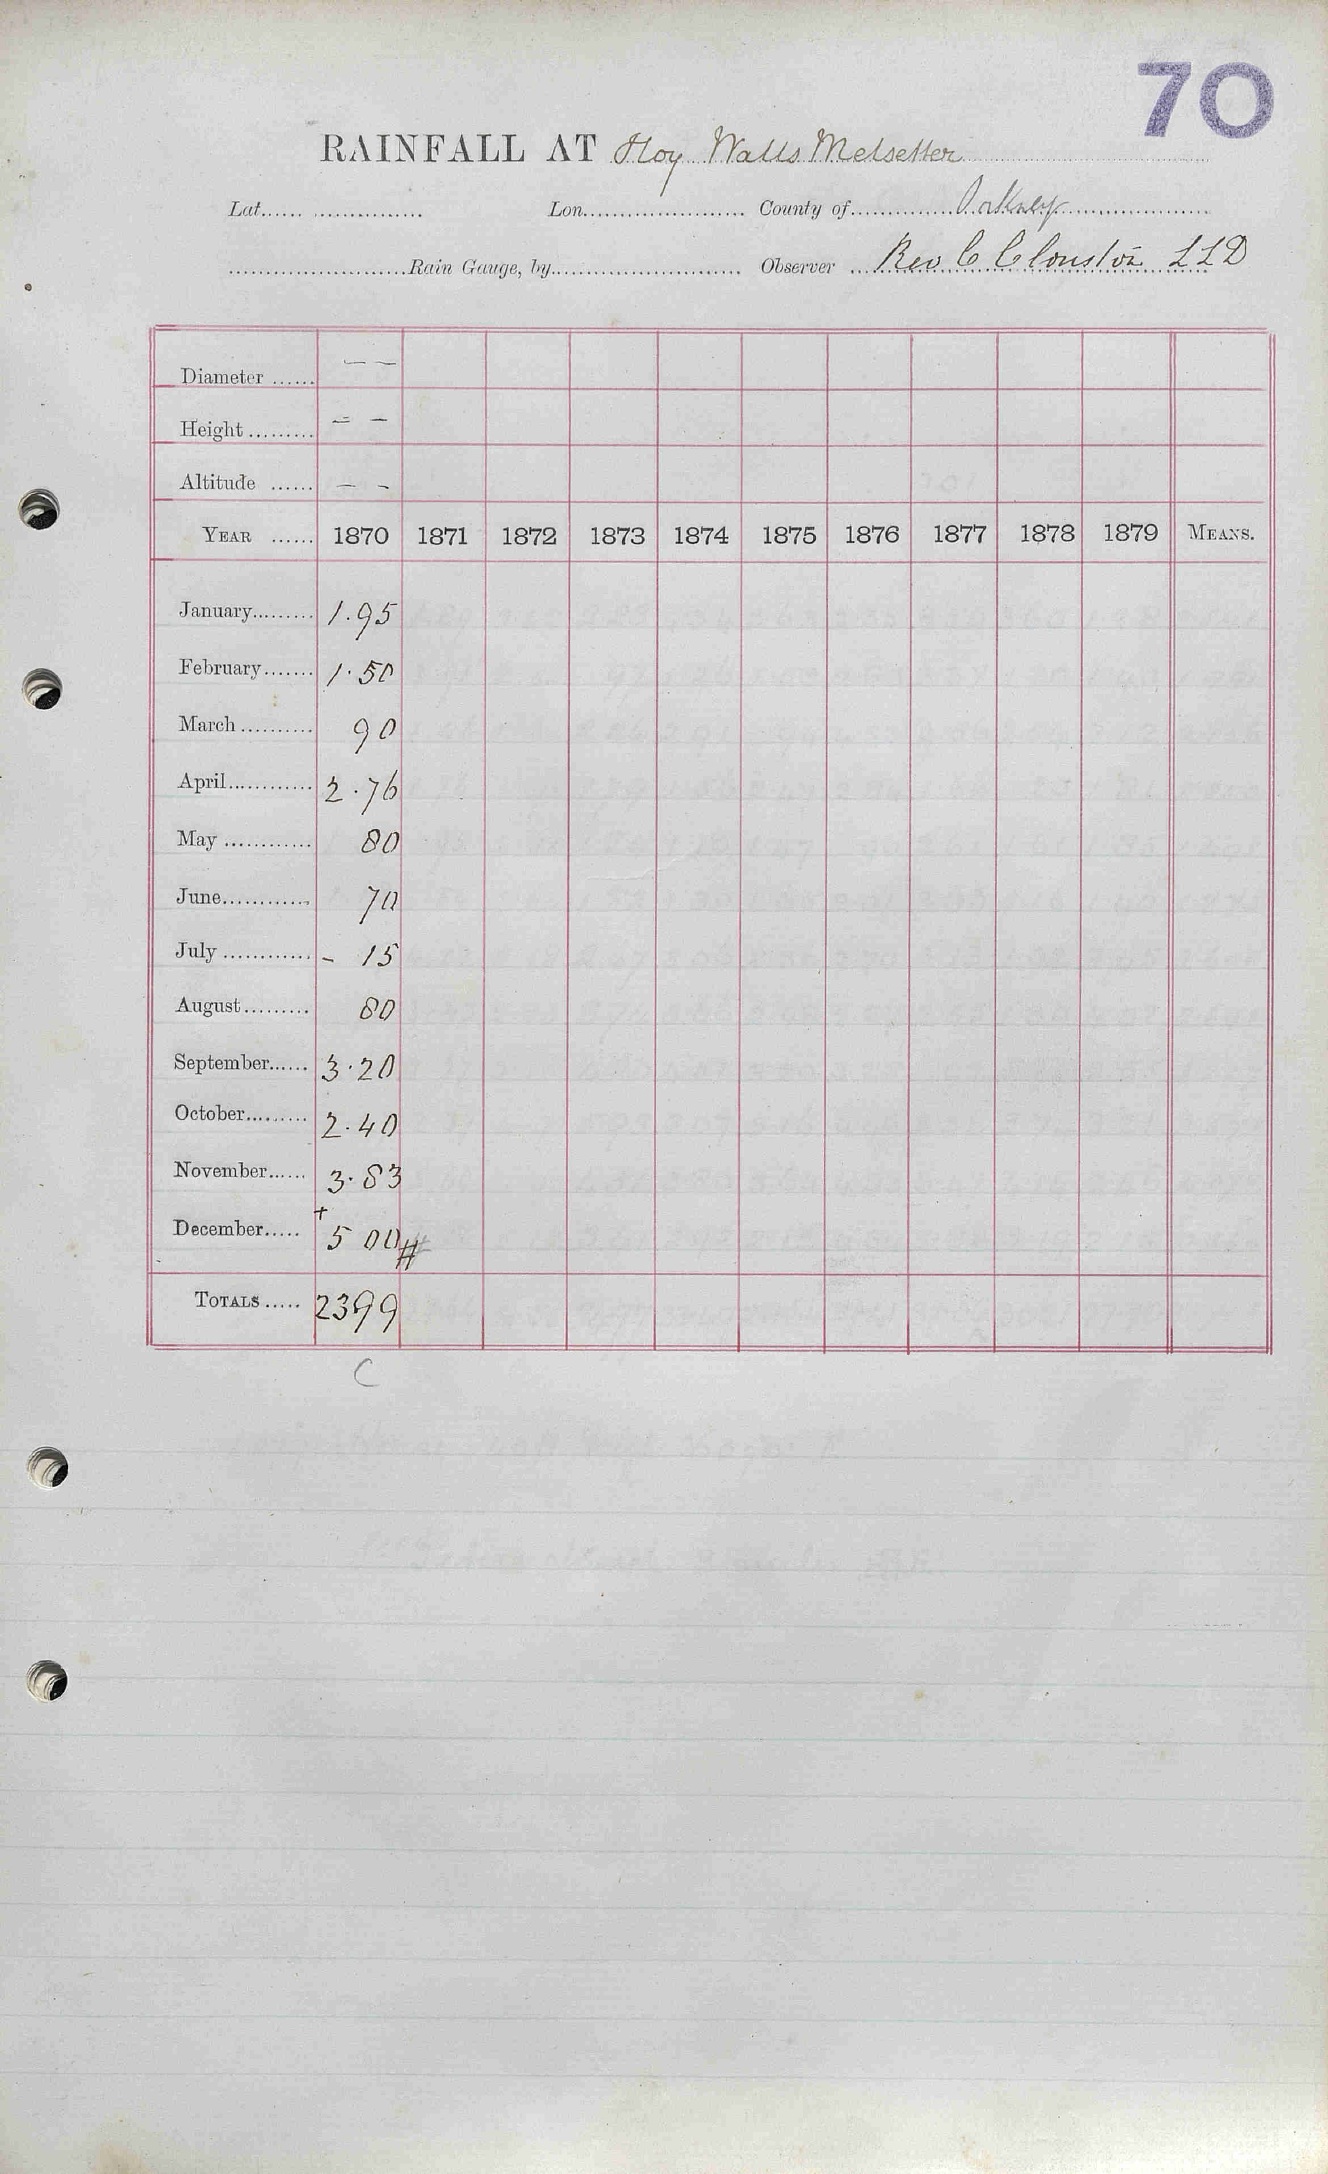 70
RAINFALL AT Hoy Walls Melsetter
Lat. Lon. County of Orkney
Rain Gauge, by Observer Rev C Clouston LLD
Diameter ...... — —
Height ......... — —
Altitude ...... — -
YEAR ...... 1870 1871 1872 1873 1874 1875 1876 1877 1878 1879 MEANS.
January......... 1.95
February....... 1.50
March .......... 90
April............ 2.76
May ............ 80
June............ 70
July ............ - 15
August......... 80
September...... 3.20
October......... 2.40
November...... 3.83
December..... + 5 00 #
TOTALS ..... 2399
C